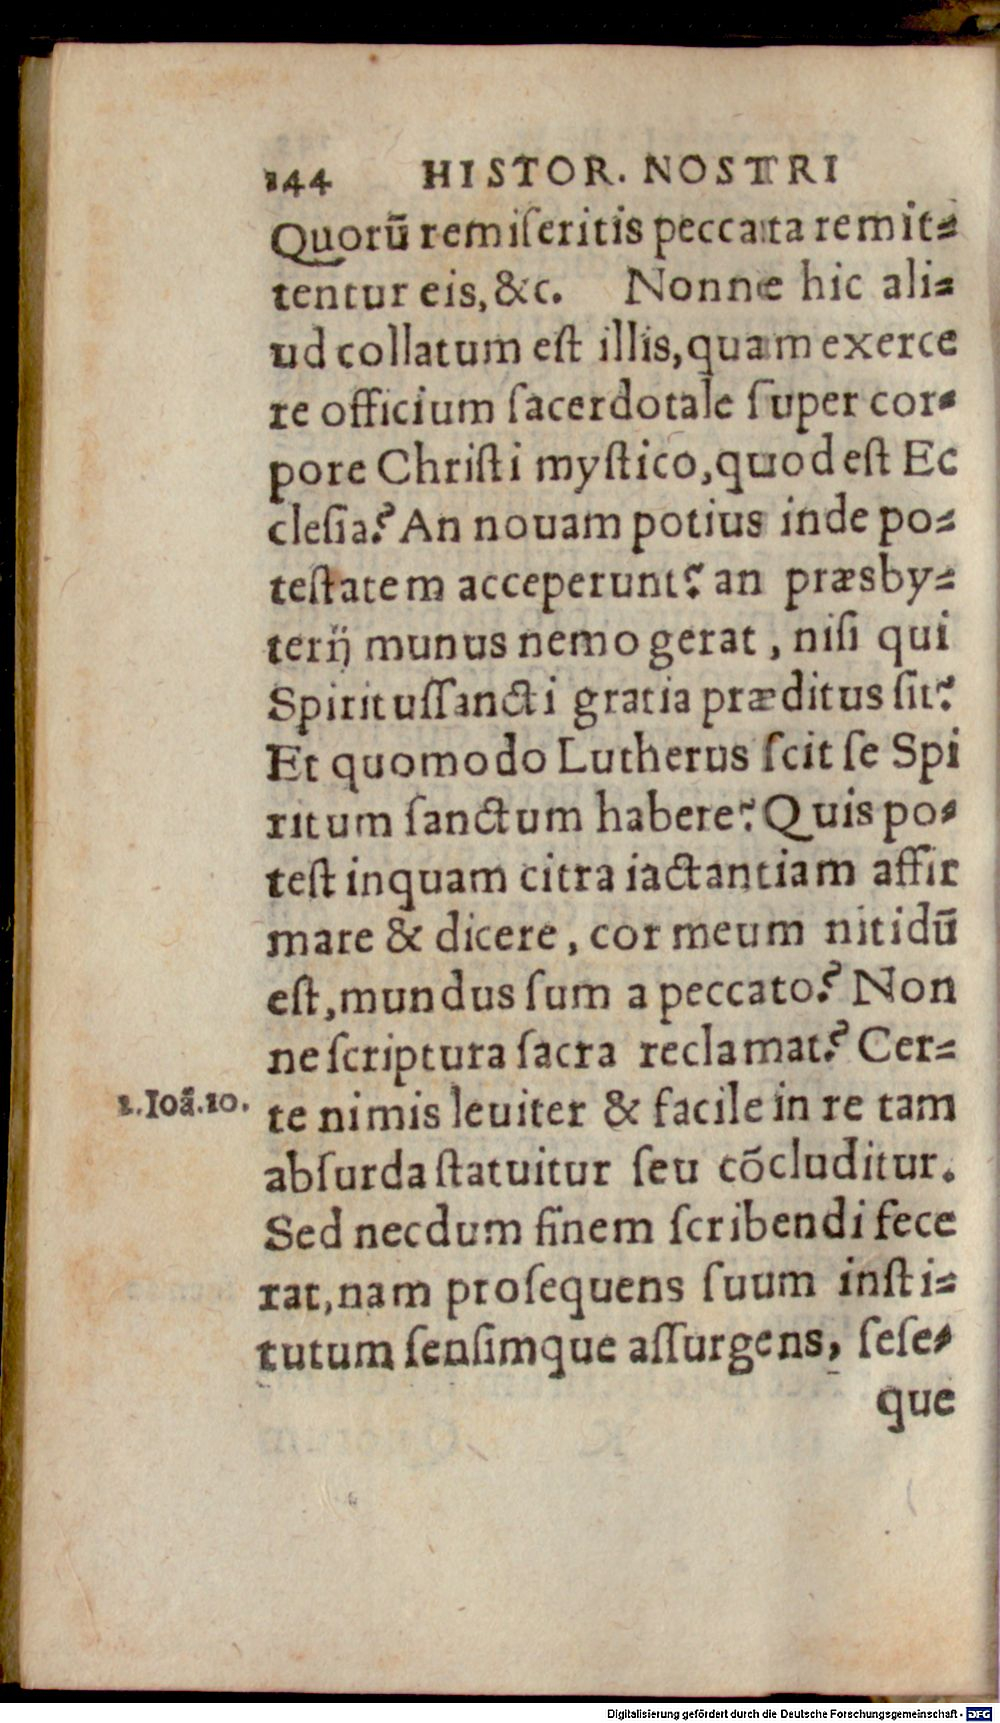 144 HISTOR. NOSTRI
Quorũ remiſeritis peccata remit=
tentur eis, &c. Nonne hic ali=
ud collatum eſt illis, quam exerce
re officium ſacerdotale ſuper cor=
pore Chriſti myſtico, quod eſt Ec
cleſia? An nouam potius inde po=
teſtatem acceperunt? an præsby=
terij munus nemo gerat, niſi qui
Spirituſſancti gratia præditus ſit?
Et quomodo Lutherus ſcit ſe Spi
ritum ſanctum habere? Quis po=
teſt inquam citra iactantiam affir
mare & dicere, cor meum nitidũ
eſt, mundus ſum a peccato? Non
ne ſcriptura ſacra reclamat? Cer=
1. Ioã. 10. te nimis leuiter & facile in re tam
abſurda ſtatuitur ſeu cõcluditur.
Sed necdum finem ſcribendi fece
rat, nam proſequens ſuum inſti=
tutum ſenſimque aſſurgens, ſeſe=
que
Digitalisierung gefördert durch die Deutsche Forschungsgemeinschaft - DFG